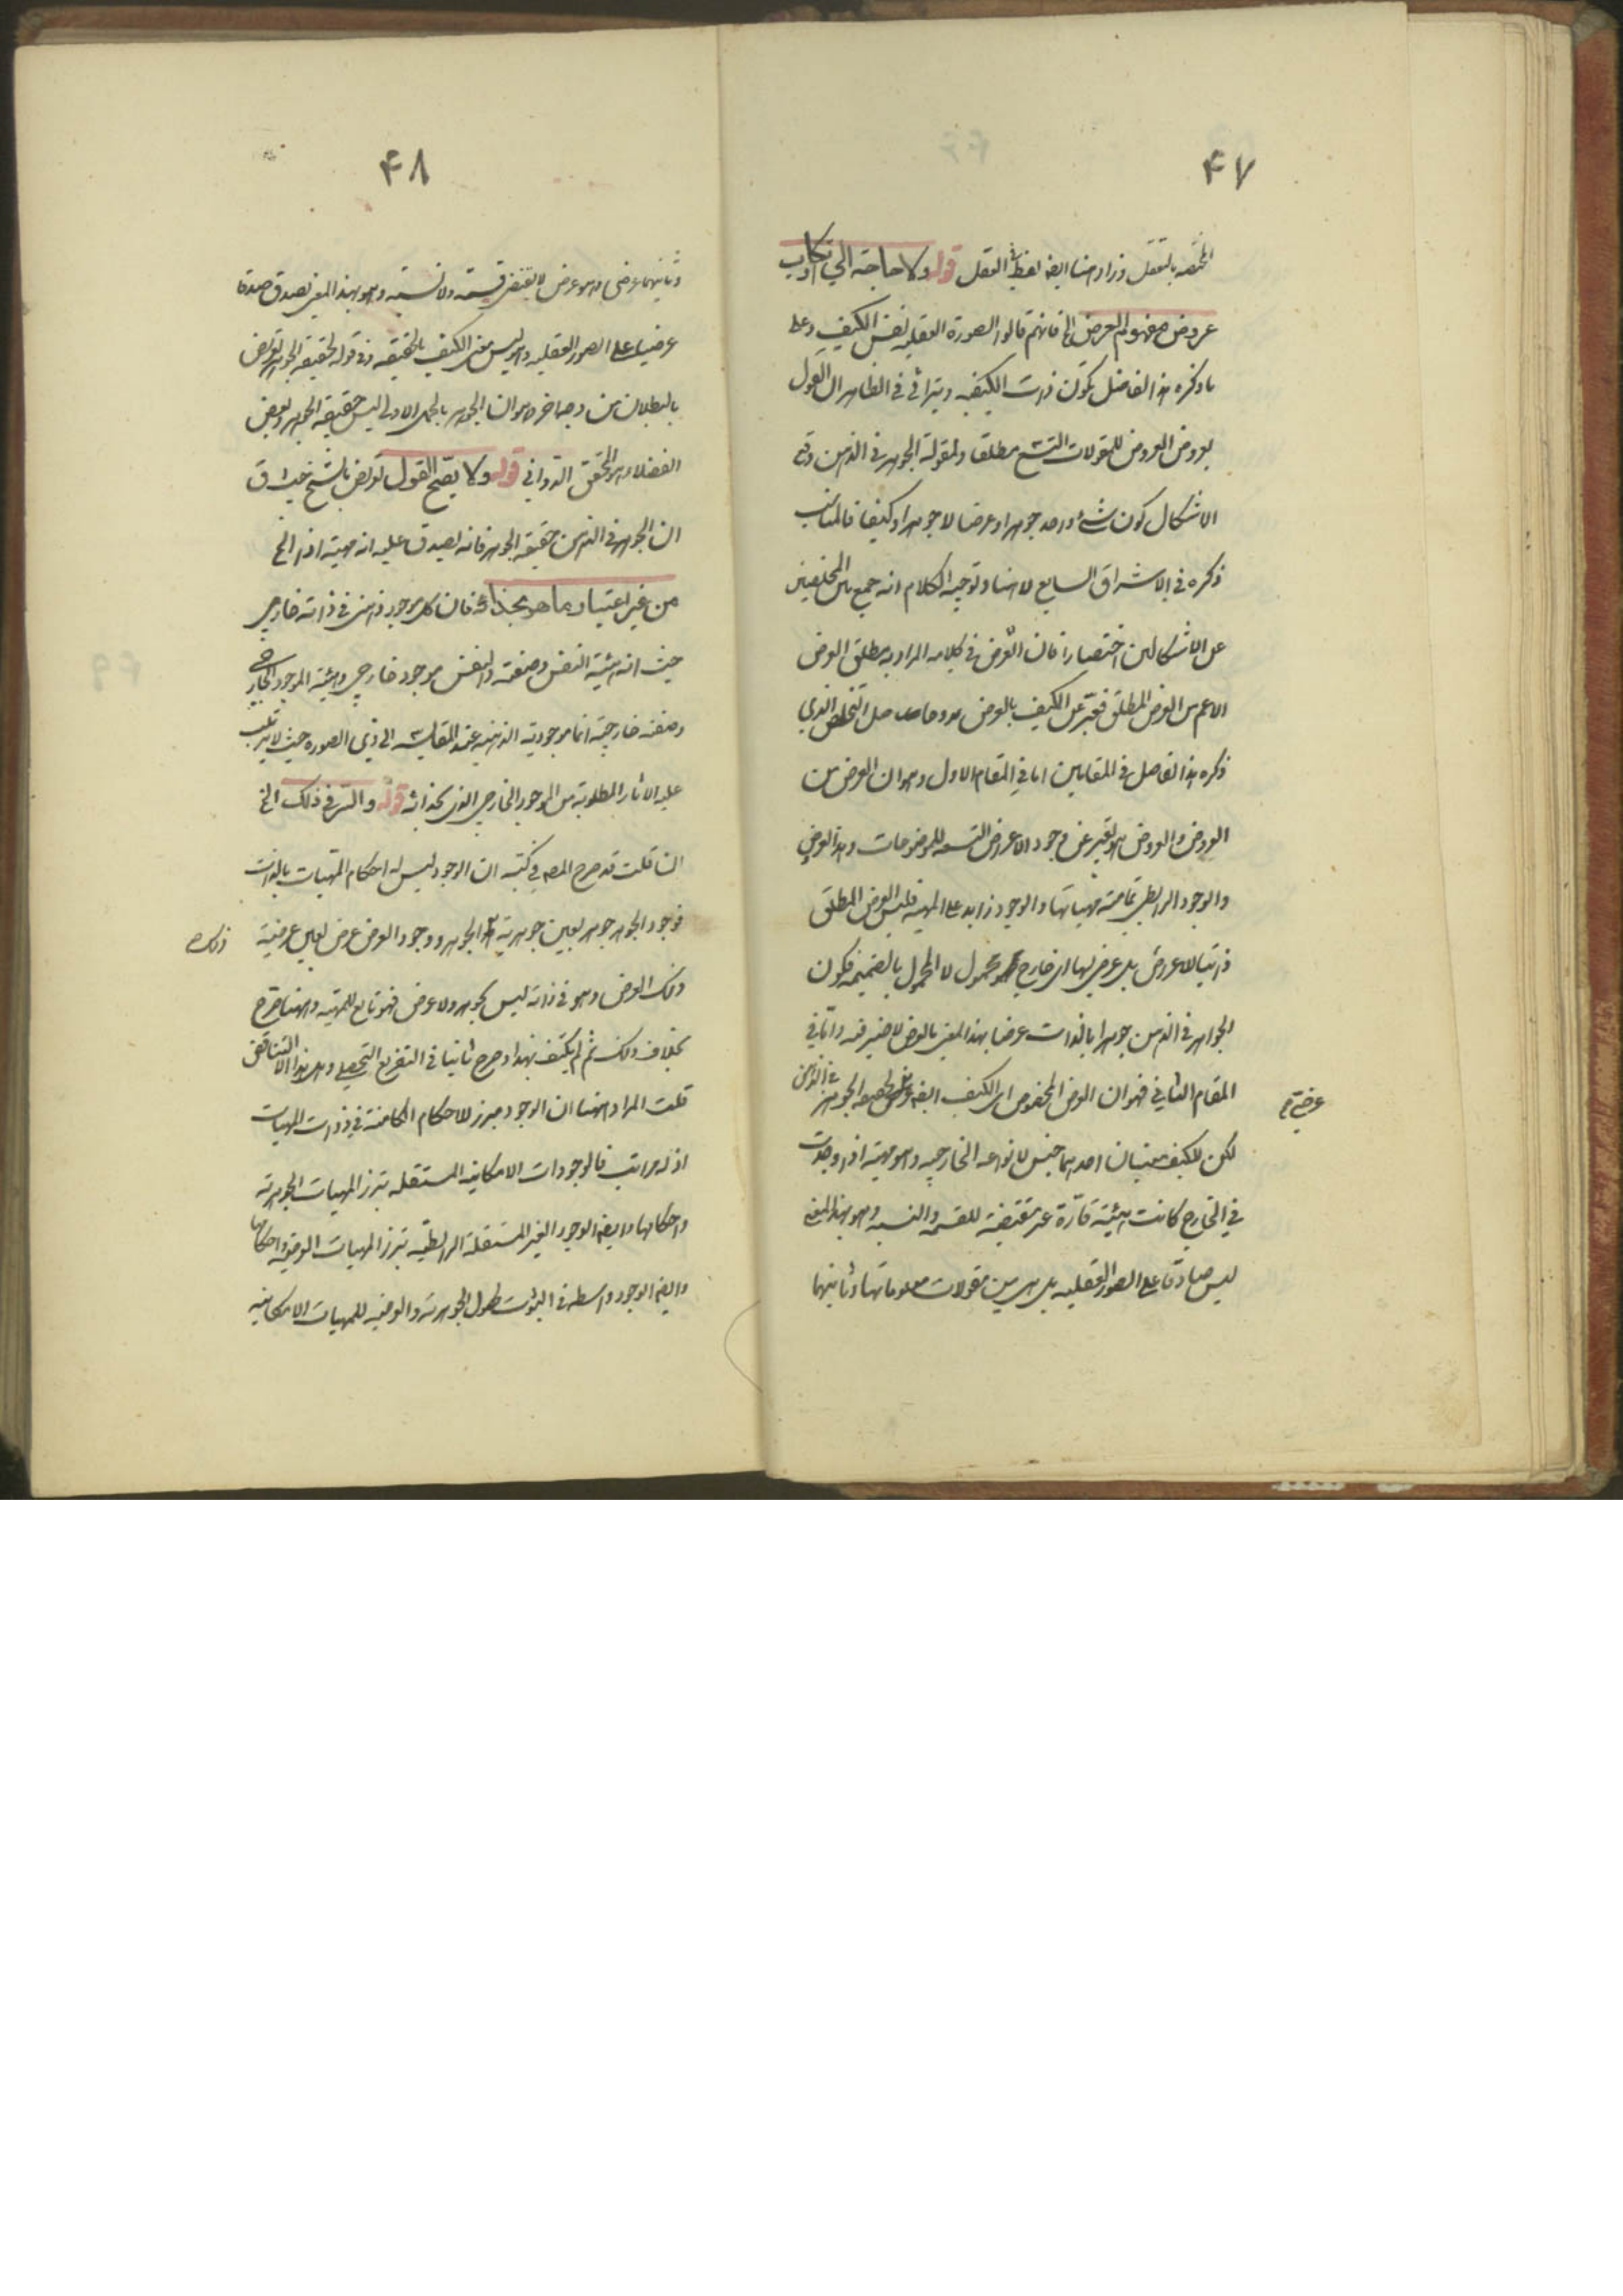 ۴۷
بالتعقل وزاد هنا ايضا لفظ العقل قوله ولا حاجة الى ارتكاب
عروض مفهوم العرض الخ فانهم قالوا الصورة العقلية نفس الكيف وعلى
ما ذكره هذا الفاضل تكون ذات الكيفية ويترائى فى الظاهر ان القول
بعروض العروض للمقولات التسع مطلقا ولمقولة الجوهر فى الذهن
الاشكال كون شئ واحد جوهرا وعرضا لا جوهرا وكيفا فالمناسب
ذكره فى الاشراق السابع لا هنا وتوجيه الكلام انه جمع بين المخلصين
عن الاشكالين اختصارا فان العرض فى كلامه المراد به مطلق العرض
الاعم من العرض المطلق فعبر عن الكيف بالعرض وحاصل التخلص الذي
ذكره هذا الفاضل فى المقامين اما فى المقام الاول وهو ان العرض من
العروض والعروض هو تعبير عن وجود الاعراض التسعة للموضوعات وهذا العروض
والوجود الرابطى مهياتها والوجود زايد على المهية فليس العرض المطلق
ذاتيا للاعراض بل عرضى لها اى خارج محمول لا المحمول بالضميمة فكون
الجواهر فى الذهن جوهرا بالذات عرضا بهذا المعنى بالعرض لا ضير فيه واما فى
المقام الثانى فهو ان العرض المخصوص اى الكيف ايضا عرضى لحقيقة الجوهر فى الذهن
عرضى
لكن للكيف معنيان احدهما جنس لانواعه الخارجية وهو مهية اذا وجدت
فى الخارج كانت هيئة قارة غير مقتضية للقسمة والنسبة وهو بهذا المعنى
ليس صادقا على الصور العقلية بل هى من مقولات معلوماتها وثانيهما
۴۸
وثانيهما عرضى وهو عرض لا يقتضى قسمة ولا نسبة وهو بهذا المعنى يصدق صدقا
عرضيا على الصور العقلية وهو ليس معنى الكيف بالحقيقة وفى قوله لحقيقة الجوهر تعريض
بالبطلان من وجه اخر وهو ان الجوهر بالحمل الاولى ليس حقيقة الجوهر وبعض
الفضلاء هو المحقق الدوانى قوله ولا يصح القول تعريض بالشيخ حيث ق
ان الجوهر فى الذهن حقيقة الجوهر فانه يصدق عليه انه مهية اذا الخ
من غير اعتبار ما هو بحذائه فان كل موجود ذهنى فى ذاته خارجى
حيث انه هيئة النفس وصفته والنفس موجود خارجى وهيئة الموجود الخارجى
وصفته خارجية انما موجوديته الذهنية عند المقايسة الى ذى الصورة حيث لا يترتب
عليه الاثار المطلوبة من الموجود الخارجى الذى بحذائه قوله والسر فى ذلك الخ
ان قلت قد صرح المص فى كتبه ان الوجود ليس له احكام المهيات بالذات
فوجود الجوهر جوهر بعين جوهرية ذلك الجوهر ووجود العرض عرض بعين عرضية
ذلك
ذلك العرض وهو فى ذاته ليس بجوهر ولا عرض فهو تابع للمهية وههنا صرح
بخلاف ذلك ثم لم يكتف بهذا وصرح ثانيا فى التفريع التحصيلى وهل هذا الا التناقض
قلت المراد ههنا ان الوجود مبرز للاحكام الكامنة فى ذوات المهيات
اذ له مراتب فالوجودات الامكانية المستقلة تبرز المهيات الجوهرية
واحكامها وايضا الوجود الغير المستقلة الرابطية تبرز المهيات العرضية واحكامها
وايضا الوجود واسطة فى الثبوت الجوهرية والعرضية للمهيات الامكانية